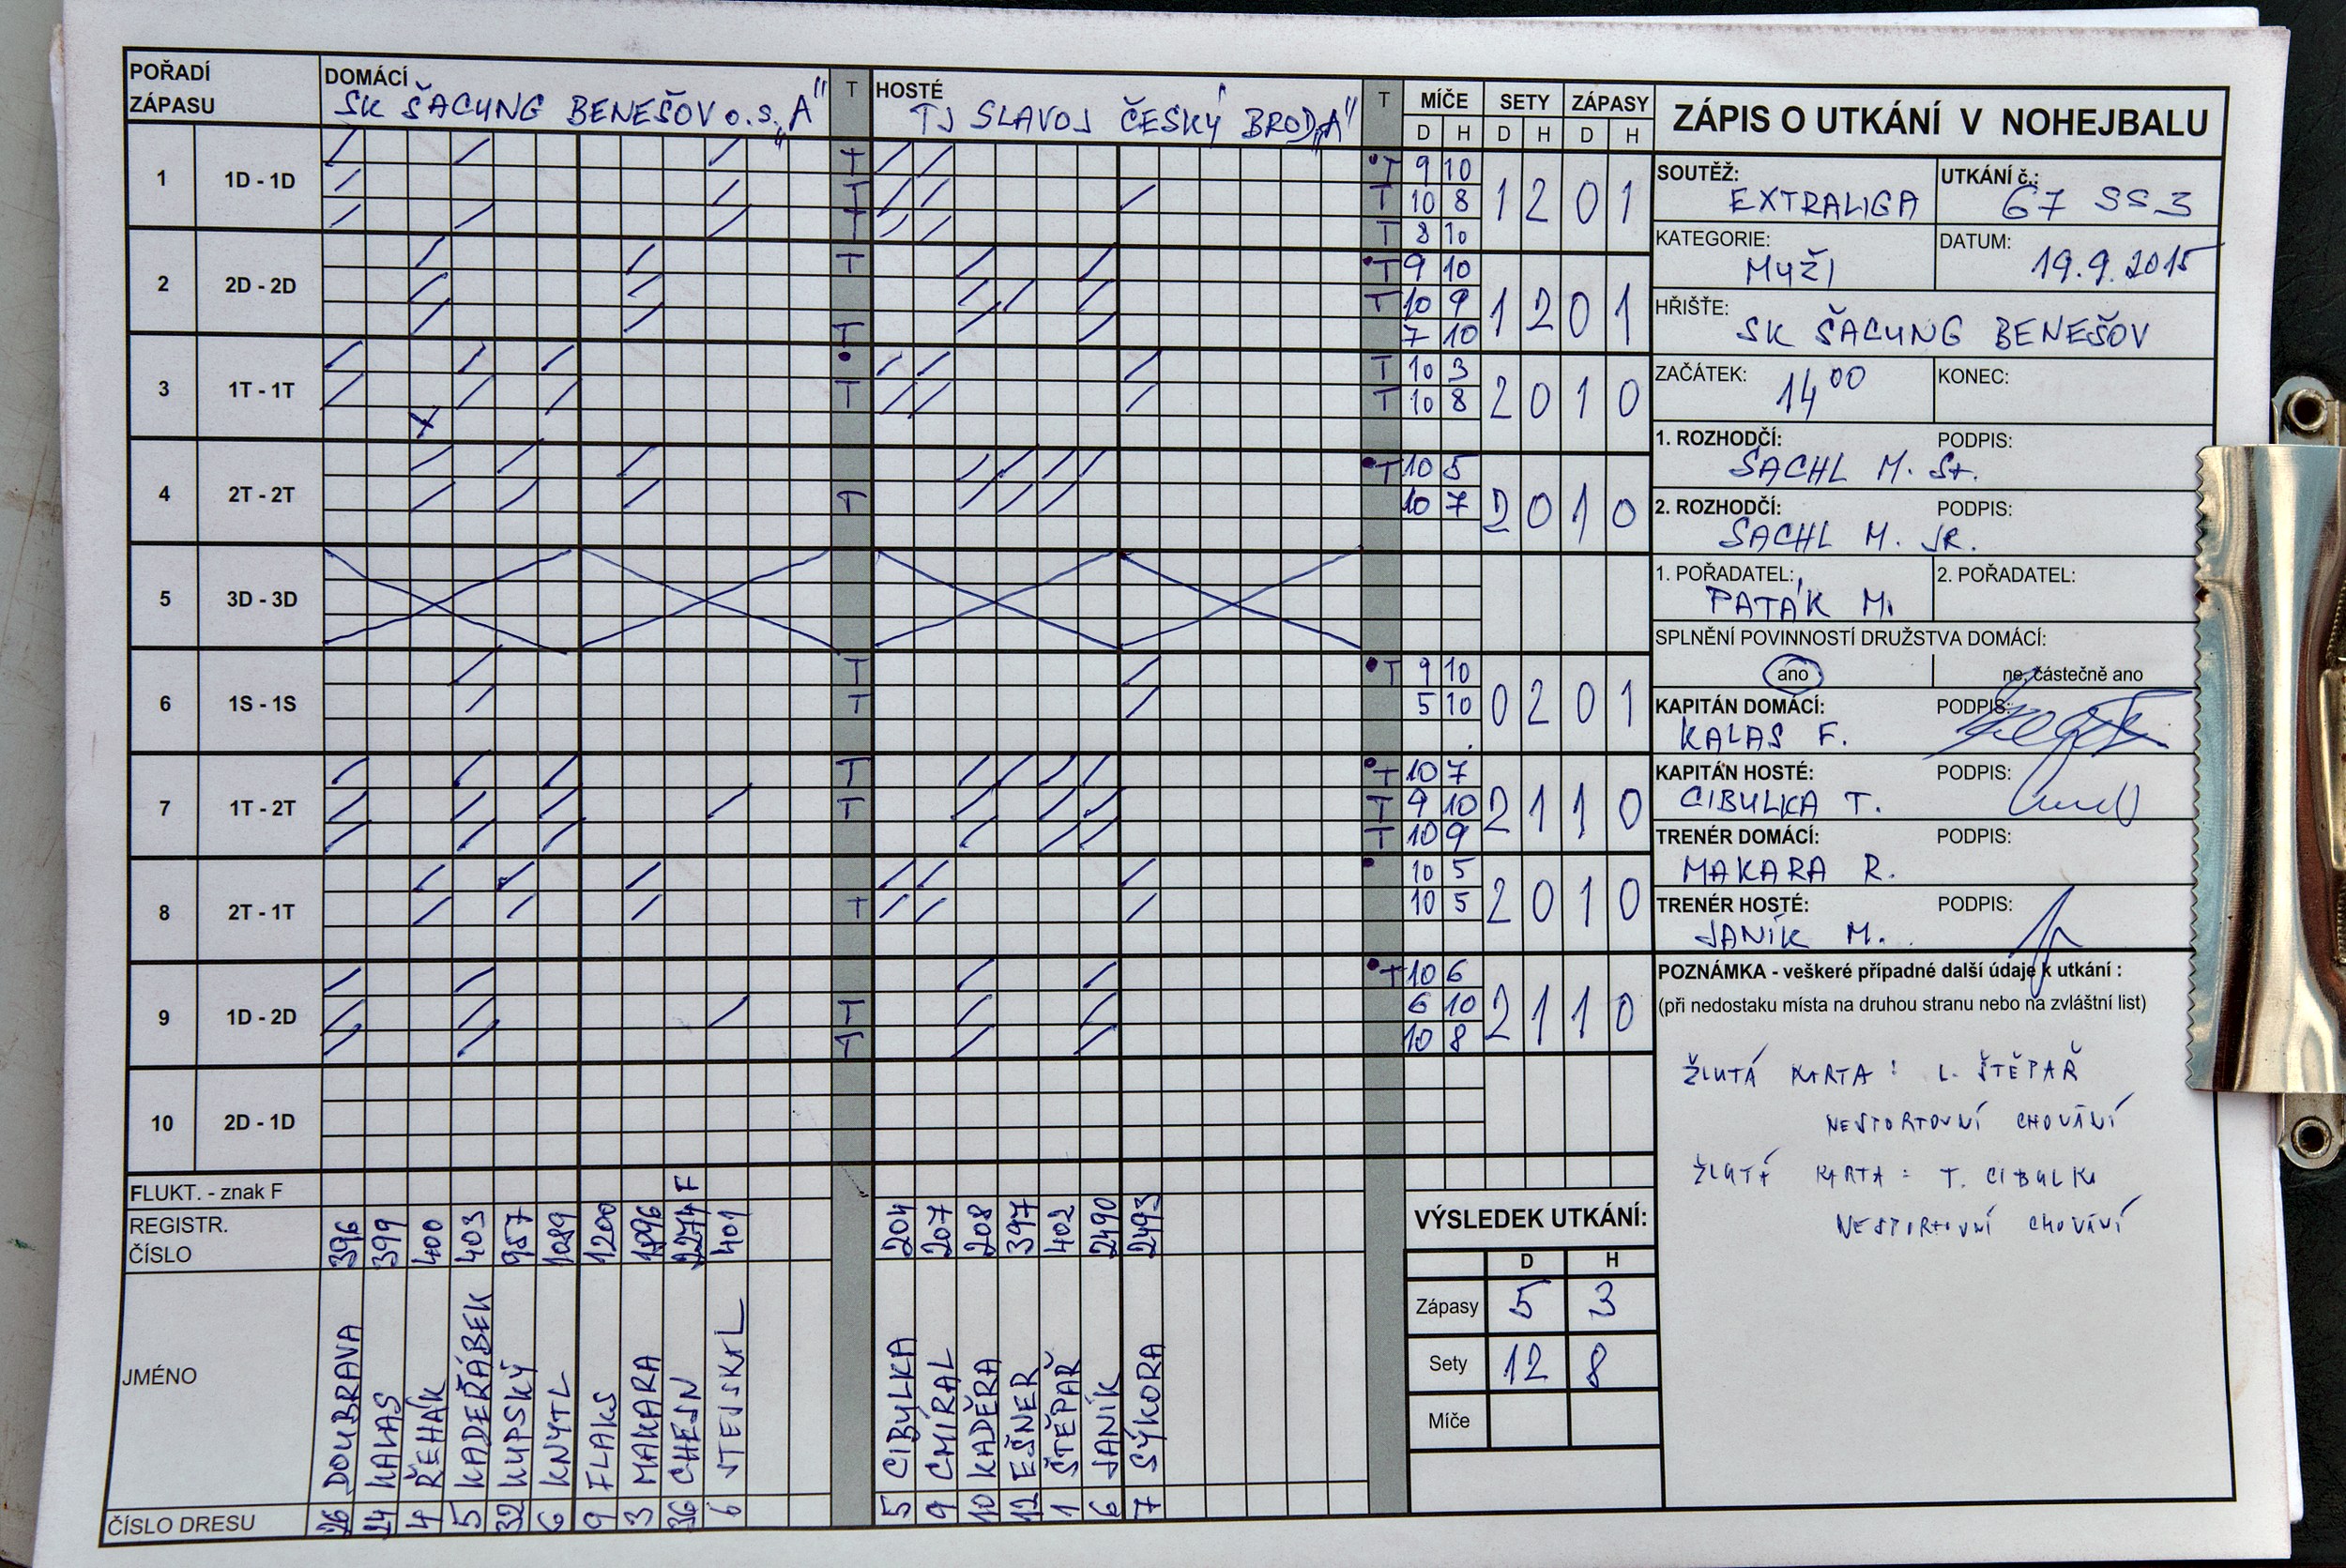 POŘADÍ ZÁPASU DOMÁCÍ SK ŠACUNG BENEŠOV o.s. „A" T HOSTÉ TJ SLAVOJ ČESKÝ BROD „A" T MÍČE SETY ZÁPASY
D H D H D H
1 1D - 1D T T 9 10 1 2 0 1
T T 10 8
T T 8 10
2 2D - 2D T T 9 10 1 2 0 1
T 10 9
T 7 10
3 1T - 1T T 10 3 2 0 1 0
T T 10 8
4 2T - 2T T 10 5 2 0 1 0
T 10 7
5 3D - 3D
6 1S - 1S T T 9 10 0 2 0 1
T 5 10
7 1T - 2T T T 10 7 2 1 1 0
T T 9 10
T 10 9
8 2T - 1T 10 5 2 0 1 0
T 10 5
9 1D - 2D T 10 6 2 1 1 0
T 6 10
T 10 8
10 2D - 1D
FLUKT. - znak F F
REGISTR. ČÍSLO 396 399 400 403 957 1089 1200 1096 2274 401 204 207 208 397 402 2490 2493
JMÉNO DOUBRAVA KALAS ŘEHÁK KADEŘÁBEK KUPSKÝ KNYTL FLAKS MAKARA CHESN STEJSKAL CIBULKA CMÍRAL KADĚRA EŠNER ŠTĚPAŘ JANÍK SÝKORA
ČÍSLO DRESU 26 14 4 5 32 6 9 3 36 6 5 9 10 12 1 6 7
VÝSLEDEK UTKÁNÍ:
D H
Zápasy 5 3
Sety 12 8
Míče
ZÁPIS O UTKÁNÍ V NOHEJBALU
SOUTĚŽ: EXTRALIGA UTKÁNÍ č.: 67 SS3
KATEGORIE: MUŽI DATUM: 19.9.2015
HŘIŠTE: SK ŠACUNG BENEŠOV
ZAČÁTEK: 14 00 KONEC:
1. ROZHODČÍ: PODPIS:
ŠACHL M. St.
2. ROZHODČÍ: PODPIS:
SACHL M. JR.
1. POŘADATEL: 2. POŘADATEL:
PATÁK M.
SPLNĚNÍ POVINNOSTÍ DRUŽSTVA DOMÁCÍ:
ano ne, částečně ano
KAPITÁN DOMÁCÍ: PODPIS:
KALAS F.
KAPITÁN HOSTÉ: PODPIS:
CIBULKA T.
TRENÉR DOMÁCÍ: PODPIS:
MAKARA R.
TRENÉR HOSTÉ: PODPIS:
JANÍK M.
POZNÁMKA - veškeré případné další údaje k utkání :
(při nedostaku místa na druhou stranu nebo na zvláštní list)
ŽLUTÁ KARTA : L. ŠTĚPAŘ
NESPORTOVNÍ CHOVÁNÍ
ŽLUTÁ KARTA : T. CIBULKA
NESPORTOVNÍ CHOVÁNÍ